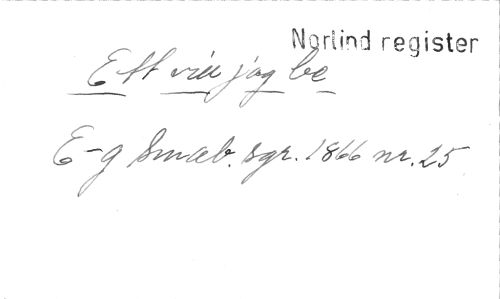 Norlind register
Ett vill jag be
E-g Smab. sgr. 1866 nr. 25